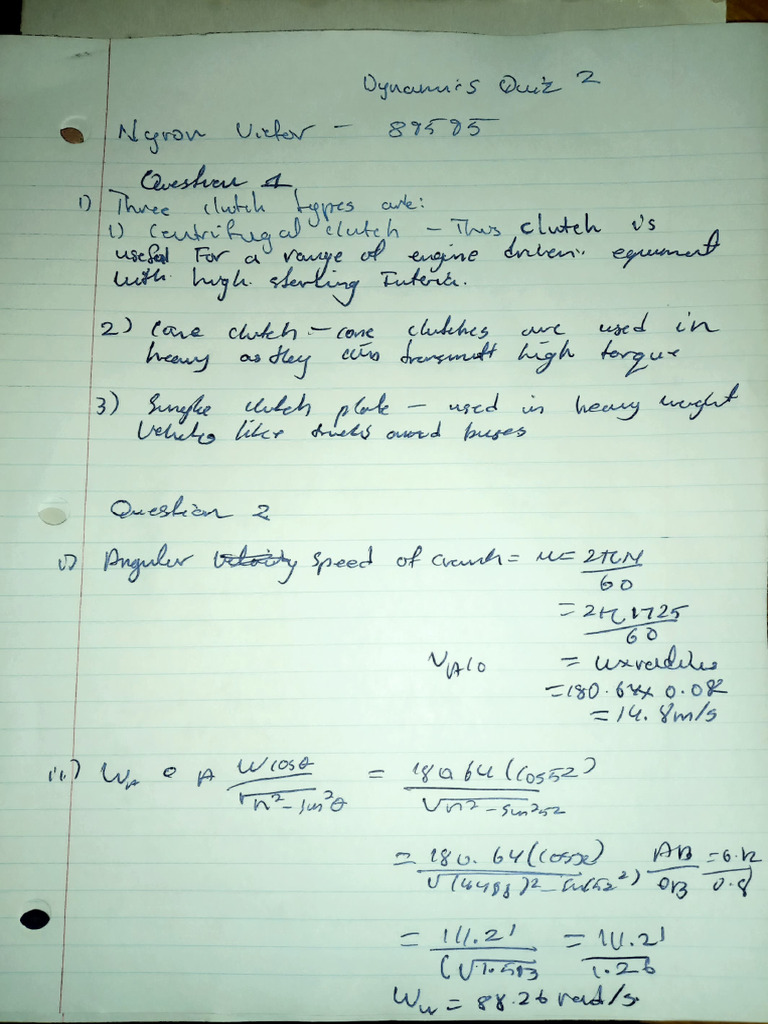 Dynamics Quiz 2
Nyron Victor - 89595
Question 1
1) Three clutch types are:
1) Centrifugal clutch - This clutch is
useful For a range of engine driven equipment
with high starting Interia.
2) Cone clutch - cone clutches are used in
heavy as they transmitt high torque
3) Single clutch plate - used in heavy weight
Vehicles like trucks and buses
Question 2
i) Angular speed of crank = w = 2πN/60
= 2π1725/60
V A/O = w x radius
= 180.64 x 0.082
= 14.8 m/s
iii) W A W cosθ/√n² - sin²θ = 180.64 (cos52)/√n² - sin²52
= 180.64 (cos52)/ AB/OB = 0.12/0.8
= 111.21/ = 111.21/1.26
W = 88.26 rad/s.